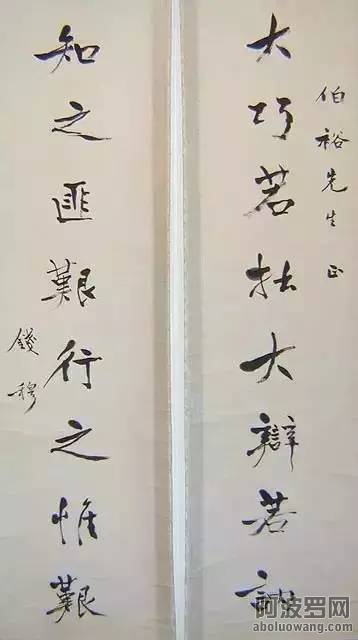 伯裕先生正
大巧若拙大辯若訥
知之匪艱行之惟艱
錢穆
阿波罗网
aboluowang.com